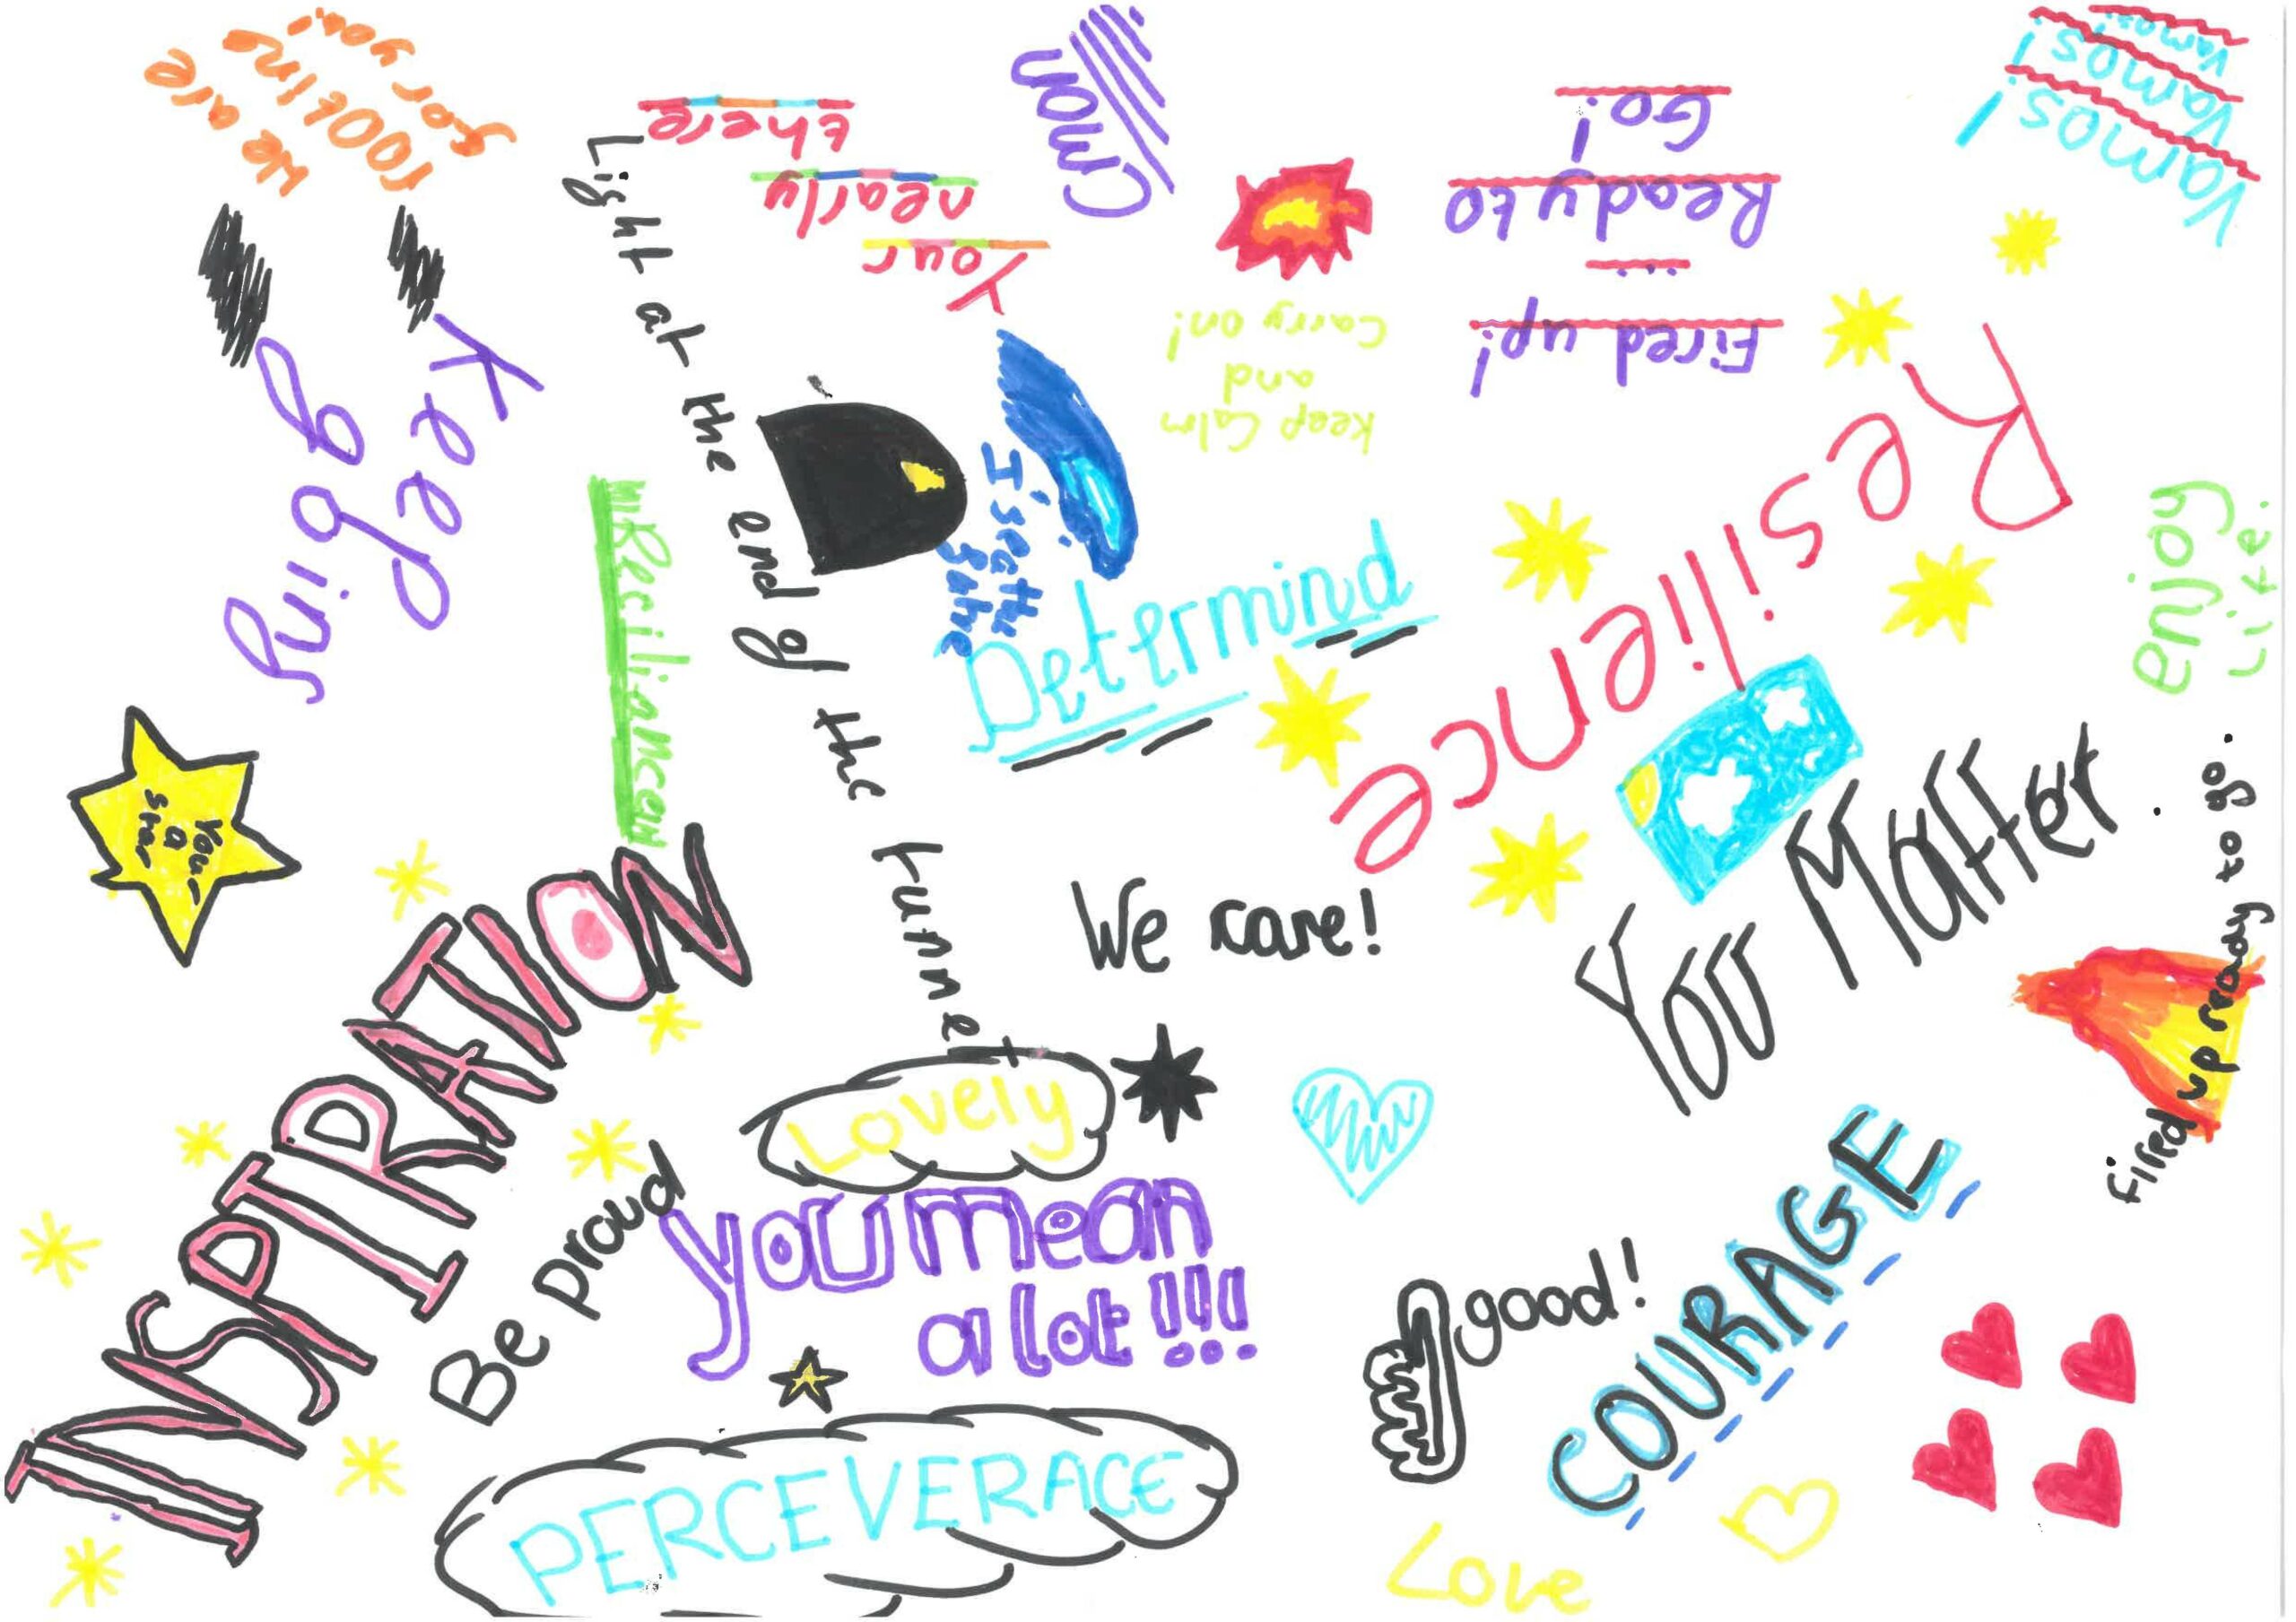 We are
rooting
for you!
Your
nearly
there
C'mon
Fired up!
Ready to
Go!
Vamos!
Vamos!
Vamos!
Keep
going
Light at the end of the tunnel
Keep Calm
and
Carry on!
I see the
Determind
Resilience
enjoy
life.
You
a
star
INSPIRATION
We care!
You Matter
fired up ready to go.
Lovely
Be proud
you mean
a lot!!!
good!
COURAGE
PERCEVERACE
Love